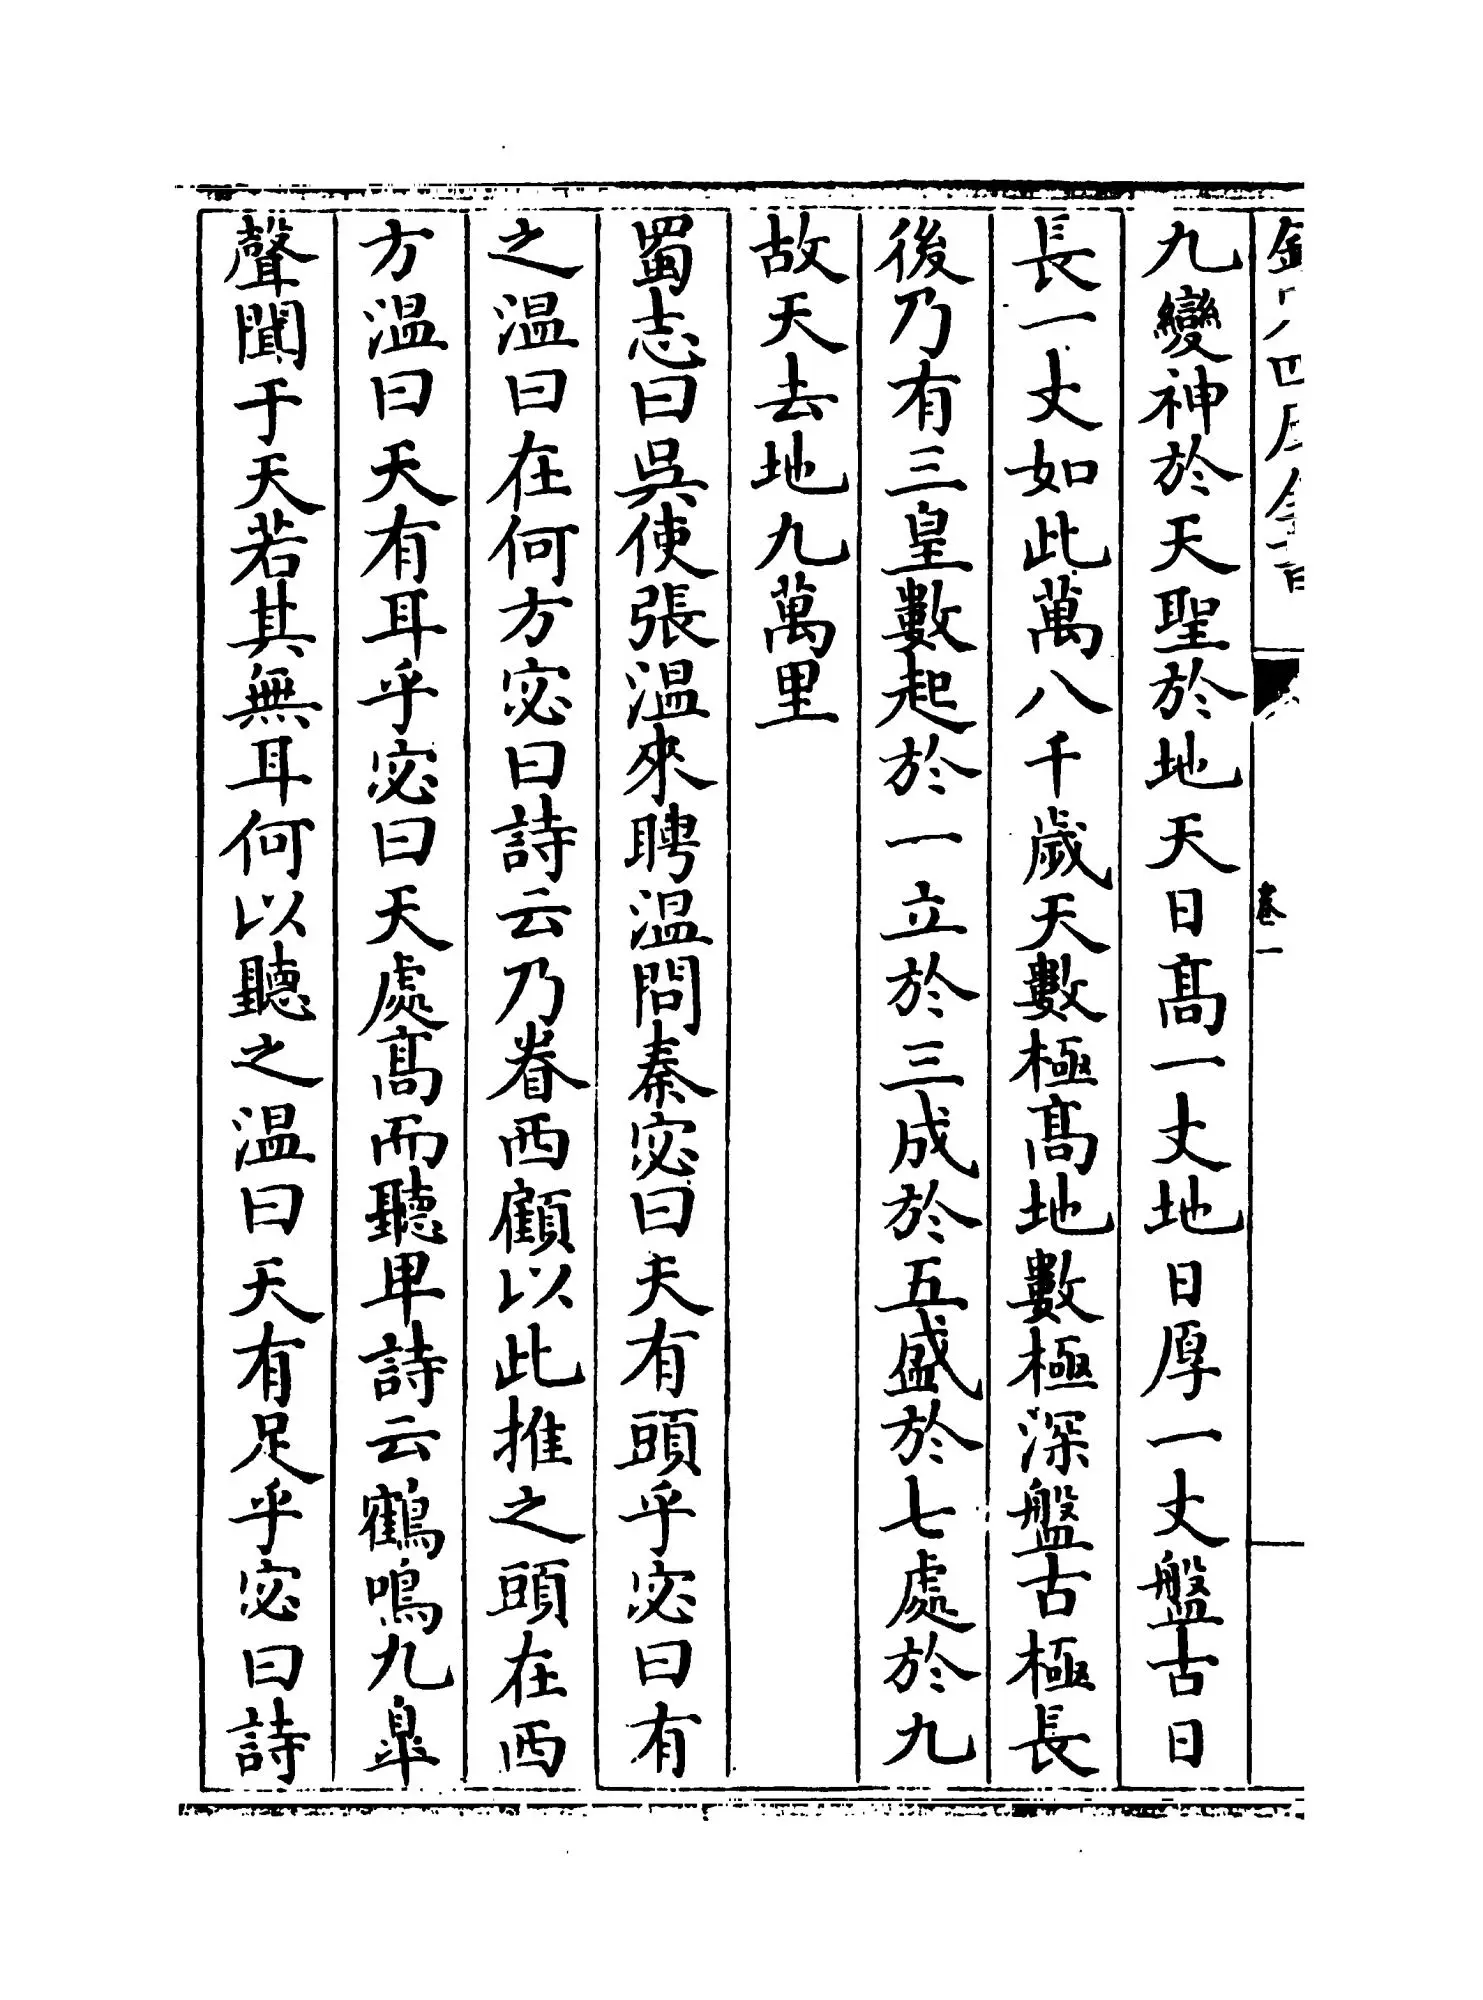 欽定四庫全書
卷一
九變神於天聖於地天日髙一丈地日厚一丈盤古日
長一丈如此萬八千歲天數極髙地數極深盤古極長
後乃有三皇數起於一立於三成於五盛於七處於九
故天去地九萬里
蜀志曰吳使張温來聘温問秦宓曰天有頭乎宓曰有
之温曰在何方宓曰詩云乃眷西顧以此推之頭在西
方温曰天有耳乎宓曰天處髙而聽卑詩云鶴鳴九臯
聲聞于天若其無耳何以聽之温曰天有足乎宓曰詩